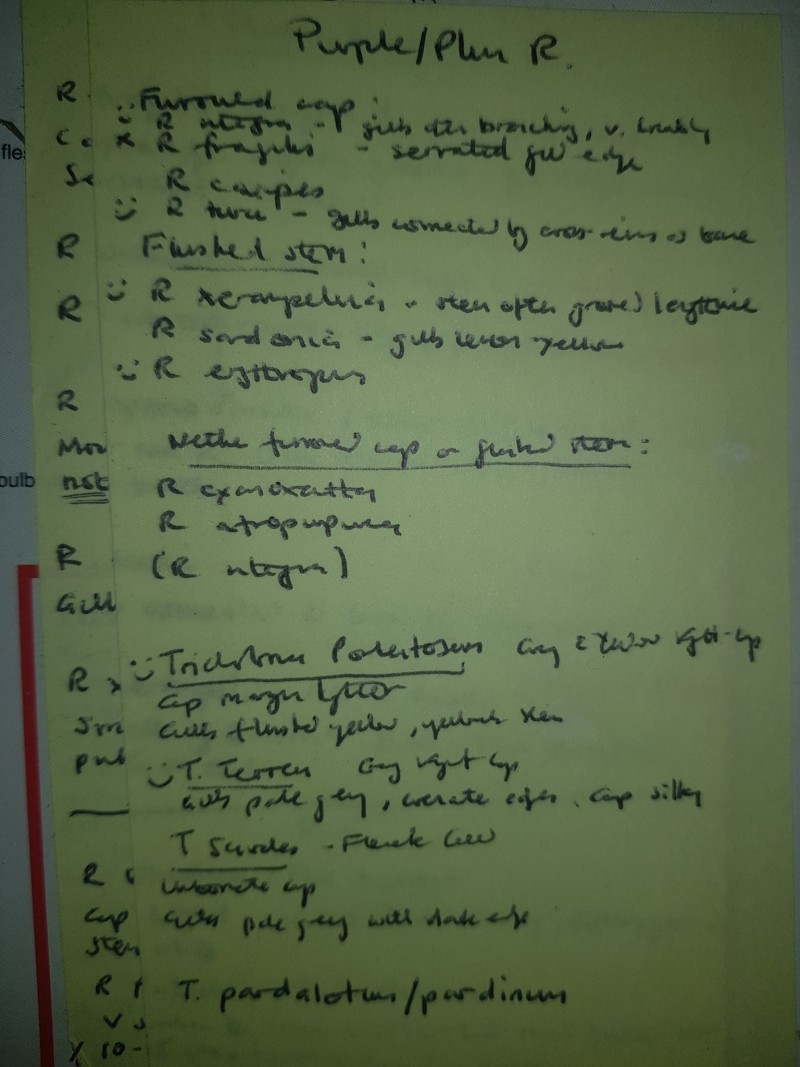 Purple/Plum R.
R
:) Furrowed cap:
R integra - gills often branching, v. brittle
fle
C.
x R fragilis - serrated gill edge
Se
R caerulea
:) R turci - gills connected by cross-veins at base
R
Flushed stem:
R
:) R xerampelina - stem often grooved lengthwise
R sardonia - gills lemon yellow
:) R erythropus
R
Mou
Neither furrowed cap or flushed stem:
bulb
not
R cyanoxantha
R atropurpurea
R
(R integra)
Gill
:) Tricholoma Portentosum Grey & Yellow cap
R x
cap margin lighter
Sm
Gills flushed yellow, yellowish stem
pub
:) T. Terreum Grey cap
Gills pale grey, crenate edges, cap silky
T Sciodes -
R
Umbonate cap
cap
Gills pale grey with dark edge
stem
R
T. pardalotum/pardinum
V
x 10-